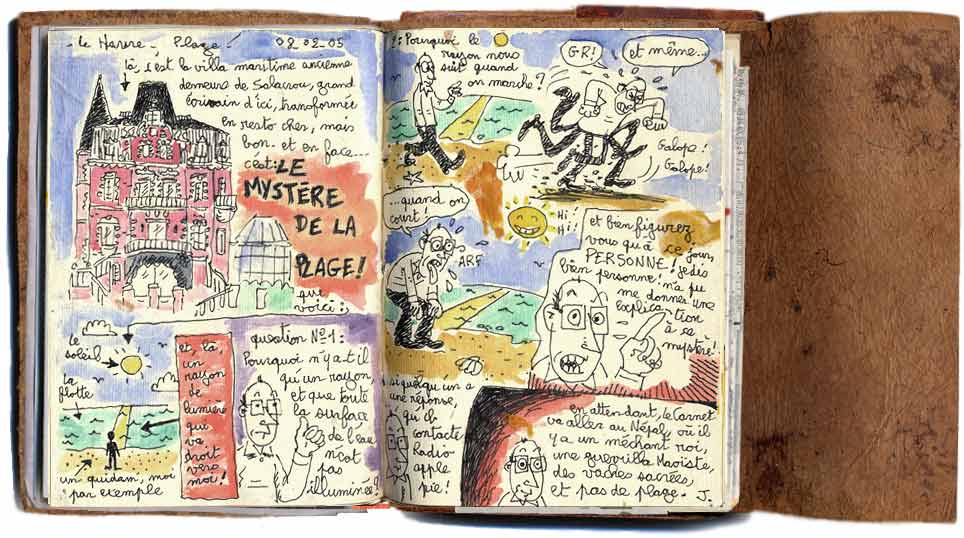 - Le Havre - Plage - 02.02.05
là, c'est la villa maritime ancienne
demeure de Salacrou, grand
écrivain d'ici, transformée
en resto cher, mais
bon. et en face...
c'est: LE
MYSTÈRE
DE LA
PLAGE!
que
voici:
Le
soleil
La
flotte
un quidam, moi
par exemple
et, là,
un
rayon
de
lumière
qui
va
droit
vers
moi!
question N°1:
Pourquoi n'y a-t-il
qu'un rayon,
et que toute
la surface
de l'eau
n'est
pas
illuminée?
2: Pourquoi le
rayon nous
suit quand
on marche?
GR!
et même...
Galope!
Galope!
...quand on
court!
ARF
Hi!
Hi!
et bien figurez
vous qu'à ce jour,
PERSONNE! je dis
bien personne! n'a pu
me donner une
explication
à ce
mystère!
si quelqu'un a
une réponse,
qu'il
contacte
Radio
apple
pie!
en attendant, le Carnet
va aller au Népal, où il
y a un méchant roi,
une guerilla Maoïste,
des vaches sacrées,
et pas de plage. J.